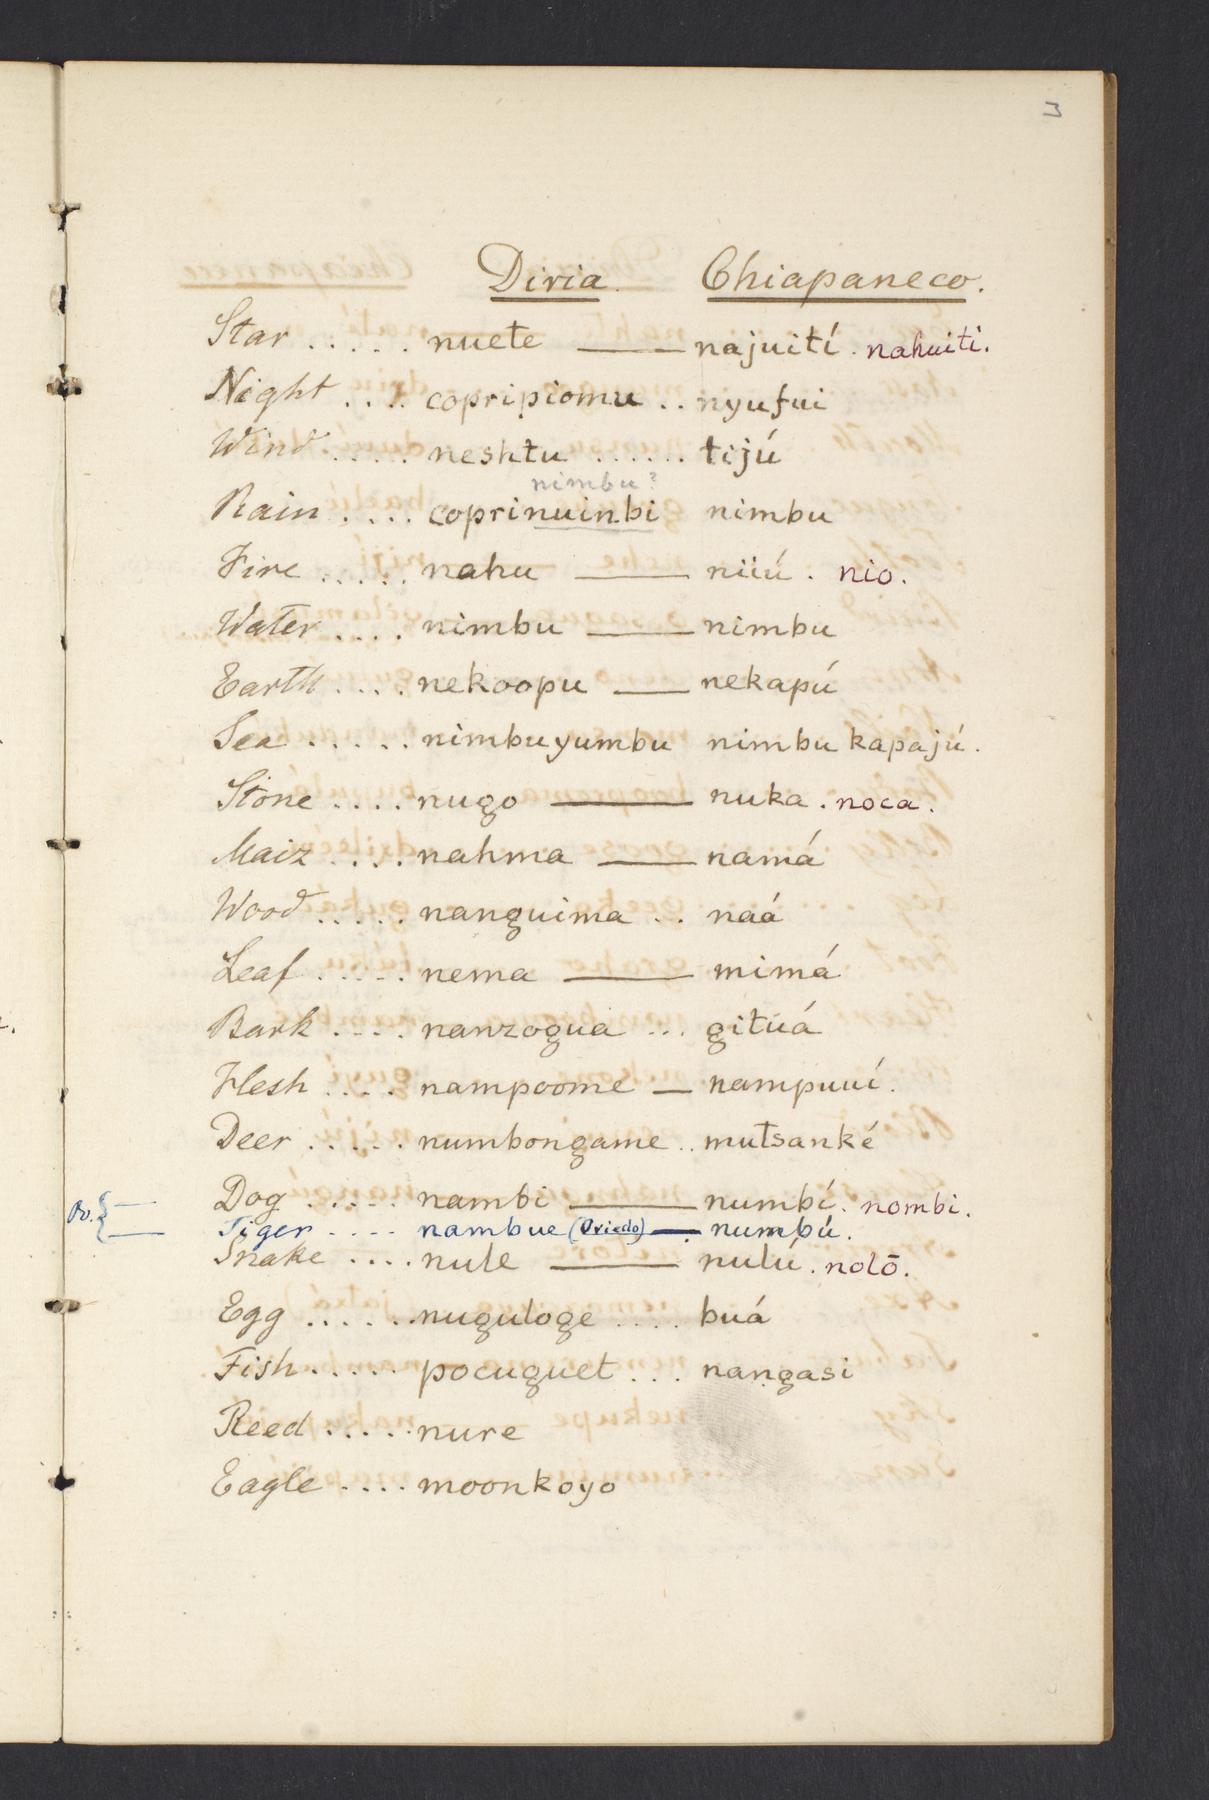 3
Diria. Chiapaneco.
Star ..... nuete —— najuití . nahuiti.
Night .... copripiomu .. nyufui
Wind ..... neshtu ...... tijú
nimbu?
Rain .... coprinuinbi nimbu
Fire ..... nahu —— niiú . nio.
Water .... nimbu —— nimbu
Earth .... nekoopu —— nekapú
Sea ..... nimbuyumbu nimbu kapajú.
Stone .... nugo —— nuka . noca.
Maiz .... nahma —— namá
Wood ..... nanguima .. naá
Leaf ..... nema —— mimá
Bark .... nanzogua ... gituá
Flesh .... nampoome — nampuuí.
Deer ..... numbongame .. mutsanké
Dog ..... nambi —— numbí. nombi.
Ov. { — Tiger .... nambue (Oviedo) — numbú.
Snake .... nule —— nulú . nolō.
Egg ...... nuguloge .... buá
Fish ..... pocuguet ... nangasi
Reed ..... nure
Eagle .... moonkoyo